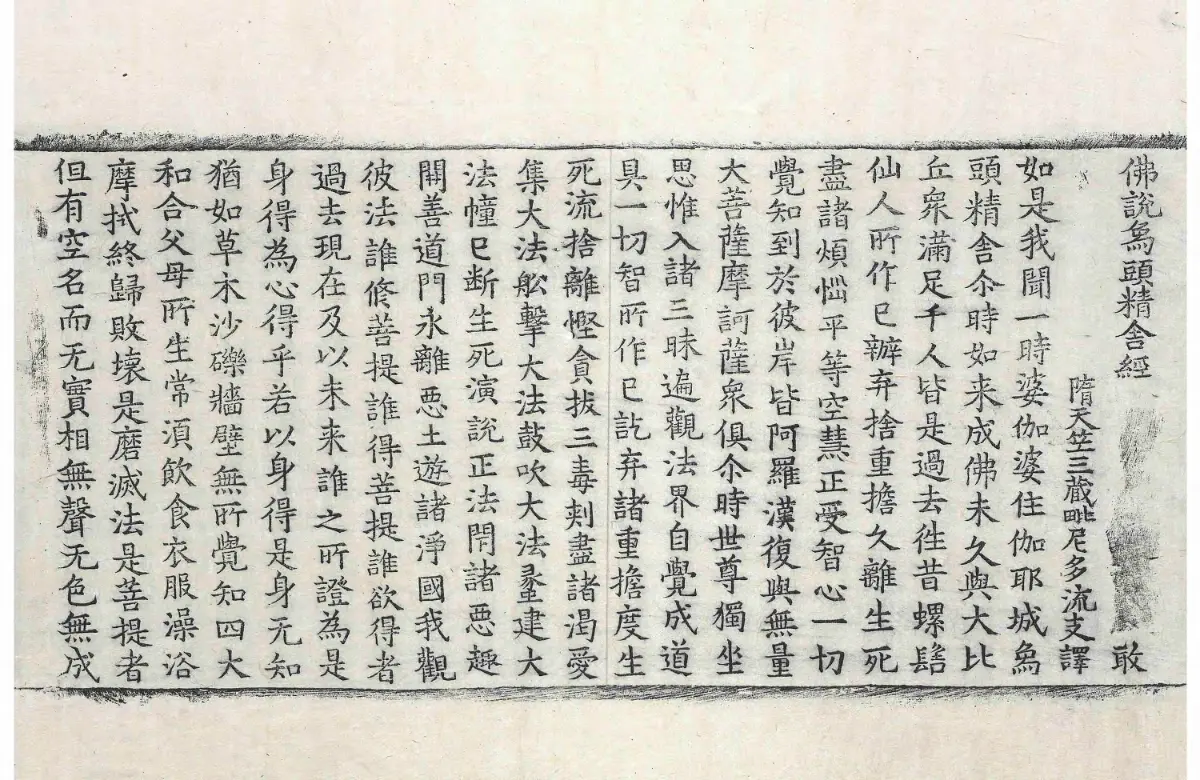 佛說象頭精舍經 敢
隋天竺三藏毗尼多流支譯
如是我聞一時婆伽婆住伽耶城象
頭精舍尒時如来成佛未久與大比
丘衆滿足千人皆是過去徃昔螺髻
仙人所作已辦弃捨重擔久離生死
盡諸煩惱平等空慧正受智心一切
覺知到於彼岸皆阿羅漢復與無量
大菩薩摩訶薩衆俱尒時世尊獨坐
思惟入諸三昧遍觀法界自覺成道
具一切智所作已訖弃諸重擔度生
死流捨離慳貪拔三毒刾盡諸渴愛
集大法舩擊大法鼓吹大法蠡建大
法幢已断生死演說正法閇諸惡趣
開善道門永離惡土遊諸淨國我觀
彼法誰修菩提誰得菩提誰欲得者
過去現在及以未来誰之所證為是
身得為心得乎若以身得是身无知
猶如草木沙礫牆壁無所覺知四大
和合父母所生常湏飲食衣服澡浴
摩拭終歸敗壞是磨滅法是菩提者
但有空名而无實相無聲无色無成